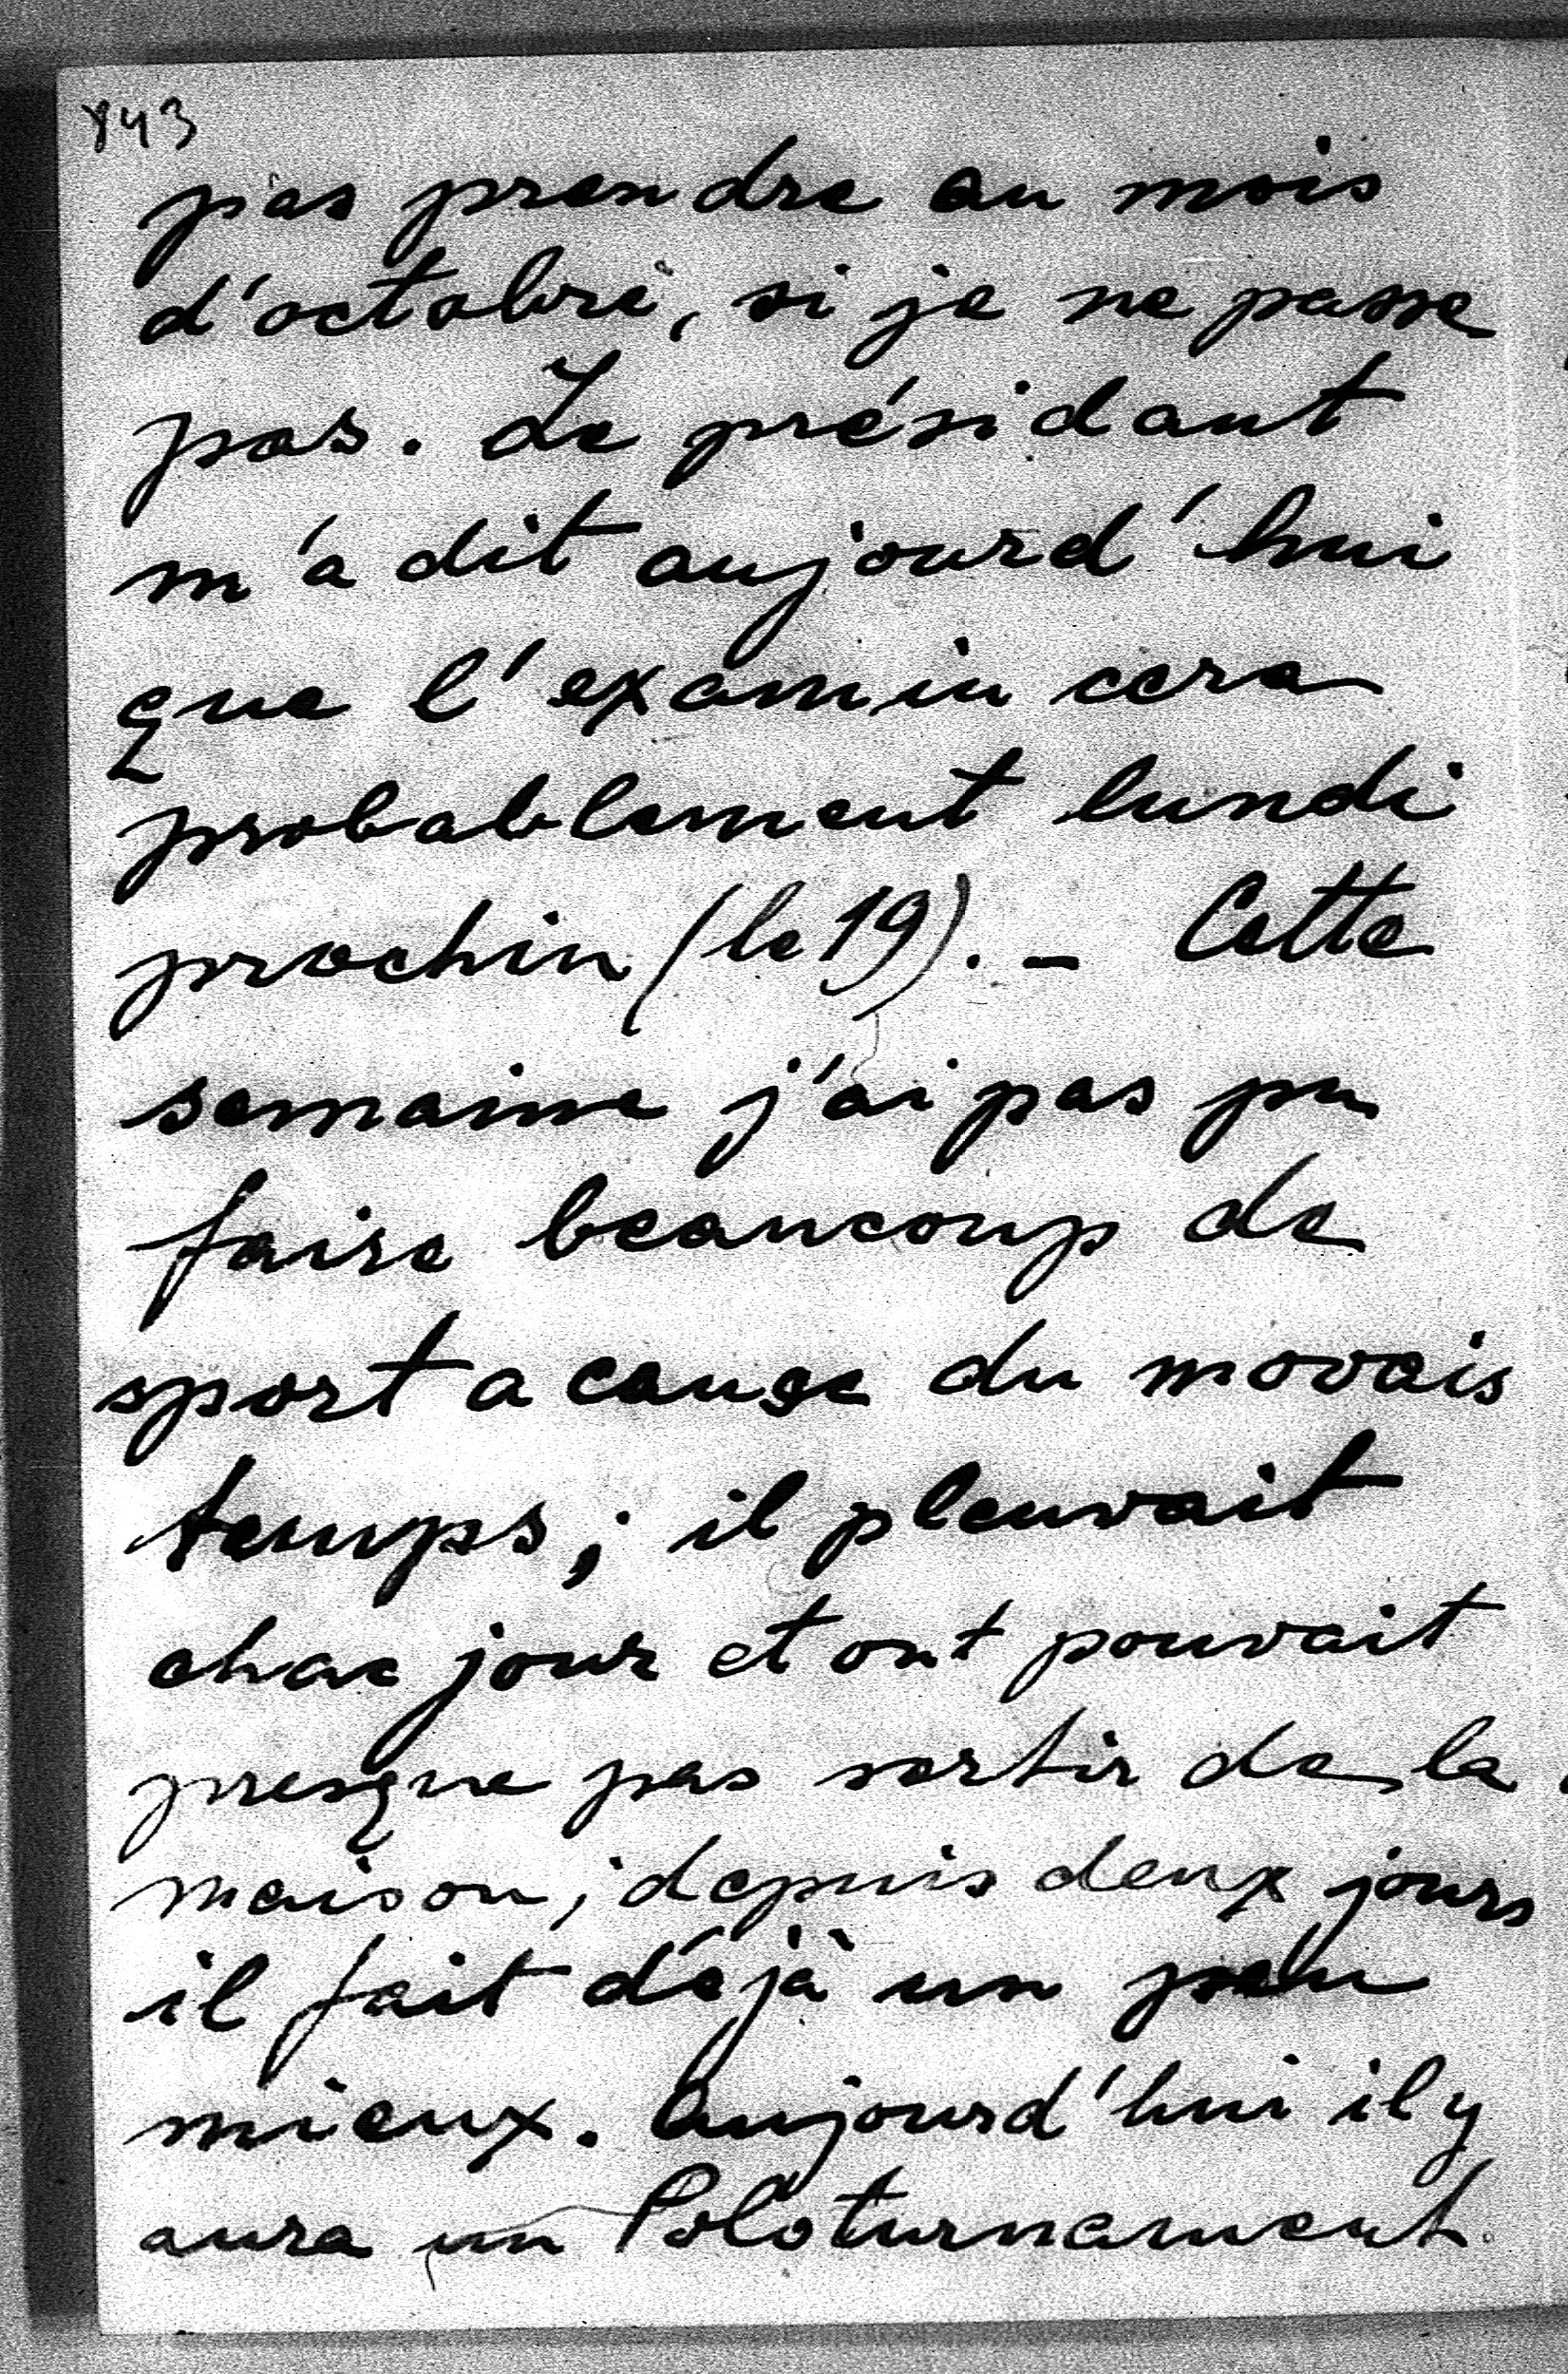 843
pas prendre au mois
d'octobre, si je ne passe
pas. Le présidant
m'a dit aujourd'hui
que l'examin cera
probablement lundi
prochin (le 19). – Cette
semaine j'ai pas pu
faire beaucoup de
sport a cause du movais
temps; il pleuvait
chac jour et ont pouvait
presque pas sortir de la
maison; depuis deux jours
il fait déjà un peu
mieux. Aujourd'hui il y
aura un Poloturnament